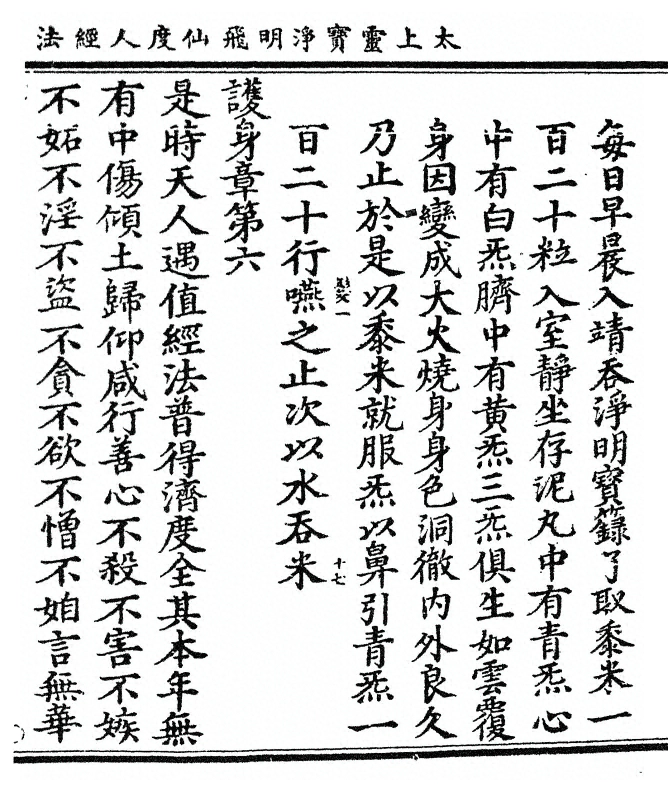 太上靈寶淨明飛仙度人經法
每日早晨入靖吞淨明寶籙了取黍米一
百二十粒入室靜坐存泥丸中有青炁心
中有白炁臍中有黄炁三炁俱生如雲覆
身因變成大火燒身身色洞徹内外良久
乃止於是以黍米就服炁以鼻引青炁一
百二十行嚥之止次以水吞米
髮一
十七
護身章第六
是時天人遇值經法普得濟度全其本年無
有中傷傾土歸仰咸行善心不殺不害不嫉
不妬不淫不盜不貪不欲不憎不妲言無華